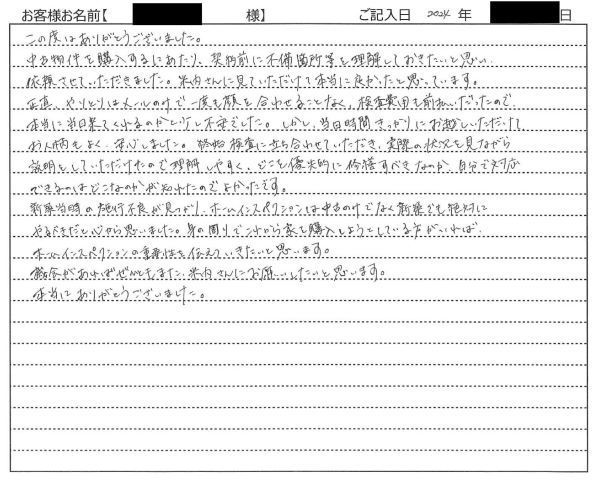 お客様お名前【 様】 ご記入日 2024 年 日
この度はありがとうございました。
中古物件を購入するにあたり、契約前に不備箇所等を理解しておきたいと思い、
依頼させていただきました。米内さんに見ていただけて本当に良かったと思っています。
正直、やりとりはメールのみで一度も顔を合わせることなく、検査費用も前払いだったので、
本当に当日来てくれるのかと少し不安でした。しかし、当日時間きっかりにお越しいただいて
お人柄もよく、安心しました。 検査に立ち合わせていただき、実際の状況を見ながら
説明をしていただけたので理解しやすく、どこを優先的に修繕すべきなのか、自分で対応
できるのはどこなのかが知れたのでよかったです。
新築当時の施行不良が見つかり、ホームインスペクションは中古のみでなく新築でも絶対に
やるべきだと心から思いました。身の周りでこれから家を購入しようとしている方がいれば、
ホームインスペクションの重要性を伝えていきたいと思います。
機会があればぜひともまた、米内さんにお願いしたいと思います。
本当にありがとうございました。